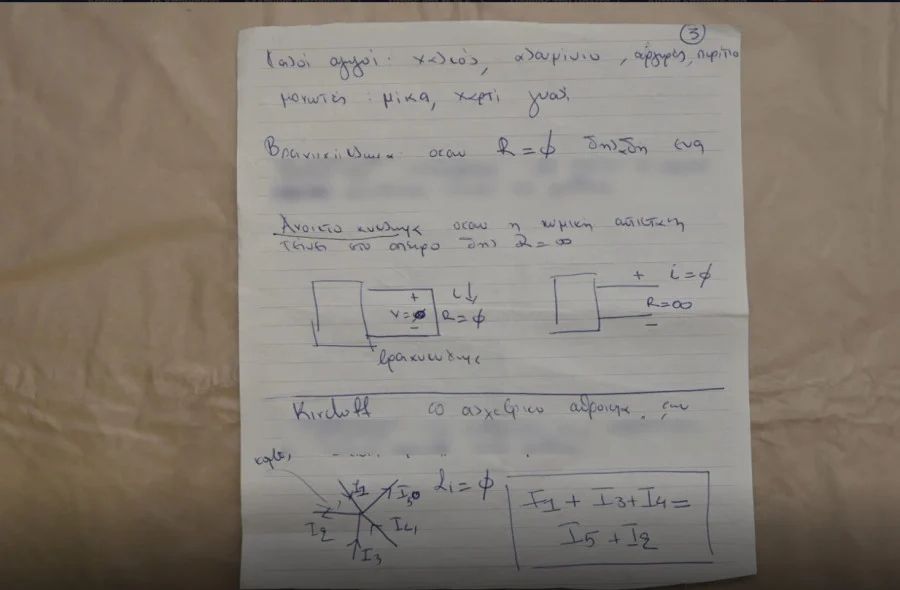 3
Καλοί αγωγοί: χαλκός, αλουμίνιο, άργυρος,
μονωτές: μίκα, χαρτί γυαλί
Βραχυκύκλωμα όταν R = ϕ δηλαδή ένα
Ανοικτό κύκλωμα όταν η ωμική αντίσταση
τείνει στο άπειρο δηλ R = ∞
+ i = ϕ
+ i
V = ϕ R = ϕ R = ∞
− −
βραχυκύκλωμα
Kirchoff το αλγεβρικό άθροισμα
I1 I5 Σi = ϕ I1 + I3 + I4 =
I2 I4 I5 + I2
I3